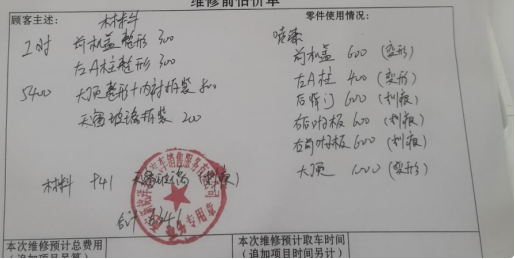 维修前估价单
顾客主述： 材料
零件使用情况：
工时 前机盖整形 300
喷漆
左A柱整形 300
前机盖 600 (变形)
5400 大顶整形十内衬拆装 800
左A柱 400 (变形)
天窗玻璃拆装 200
后背门 600 (划痕)
右后叶板 600 (划痕)
右前叶板 600 (划痕)
大顶 1000 (变形)
材料 941 天窗玻璃
合计
本次维修预计总费用
(追加项目另算)
本次维修预计取车时间
(追加项目时间另计)